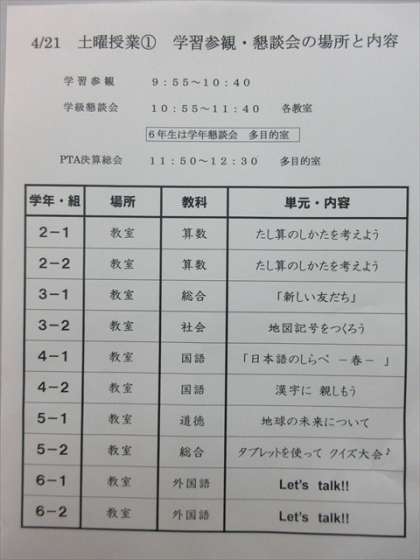 4/21 土曜授業① 学習参観・懇談会の場所と内容
学習参観 9:55～10:40
学級懇談会 10:55～11:40 各教室
6年生は学年懇談会 多目的室
PTA決算総会 11:50～12:30 多目的室
学年・組 場所 教科 単元・内容
2-1 教室 算数 たし算のしかたを考えよう
2-2 教室 算数 たし算のしかたを考えよう
3-1 教室 総合 「新しい友だち」
3-2 教室 社会 地図記号をつくろう
4-1 教室 国語 「日本語のしらべ －春－ 」
4-2 教室 国語 漢字に 親しもう
5-1 教室 道徳 地球の未来について
5-2 教室 総合 タブレットを使って クイズ大会♪
6-1 教室 外国語 Let's talk!!
6-2 教室 外国語 Let's talk!!